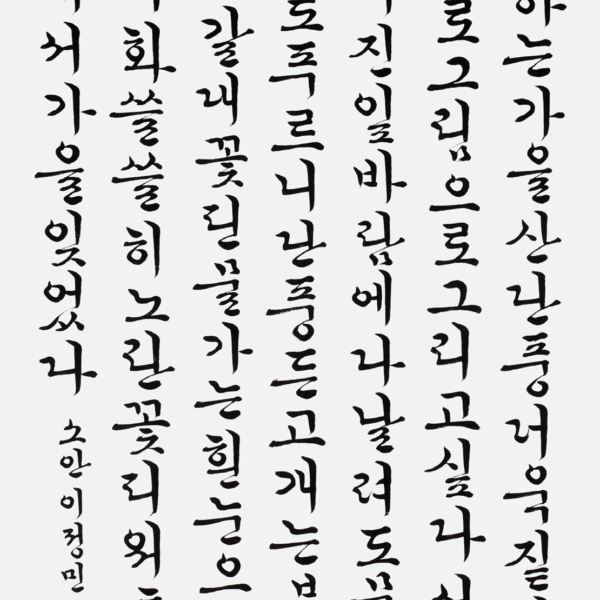 는가을산단풍더욱짙
로그림으로그리고싶다
진잎바람에나날려도
도푸르니단풍든고개는
갈대꽃핀물가는흰눈으
화쓸쓸히노란꽃피워
서가을잊었다
소안이정민